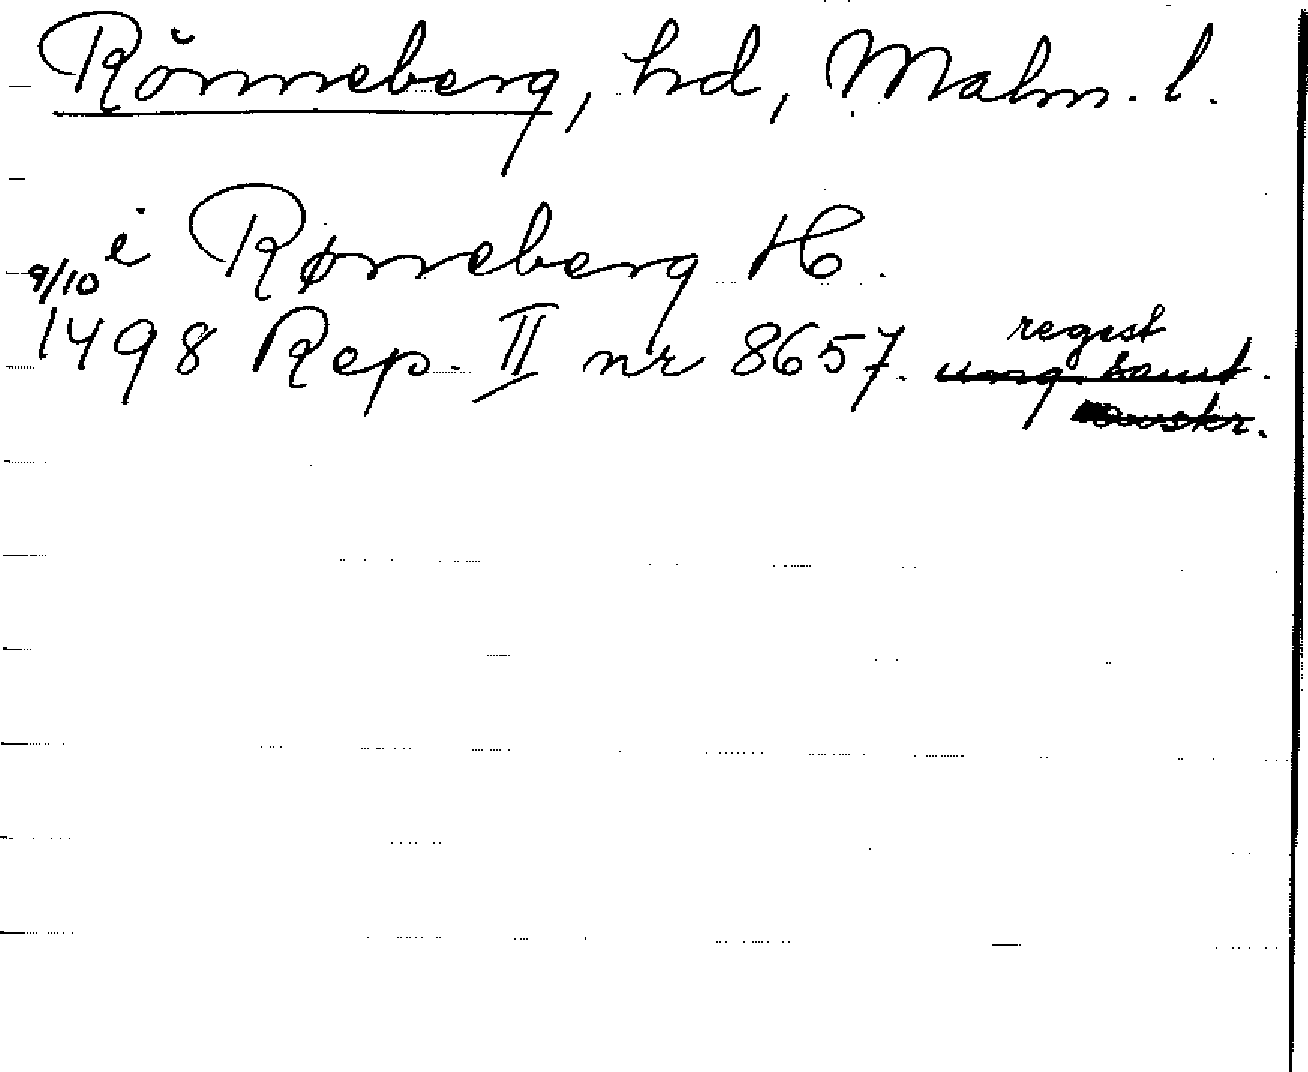 Rönneberg, hd, Malm. l.
i Rønneberg H.
9/10
1498 Rep. II nr 8657. regest
ung. samt.
avskr.